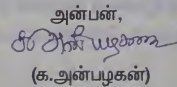 அன்பன்,
க. அன்பழகன்
(க.அன்பழகன்)